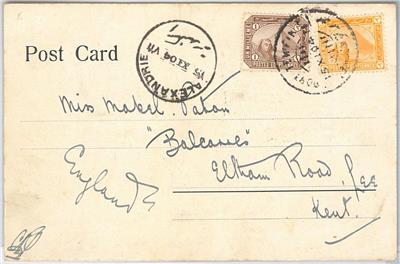 Post Card
ALEXANDRIE
15 XI 04
Miss Mabel Paton
"Balcarres"
Eltham Road, Lee
Kent.
England